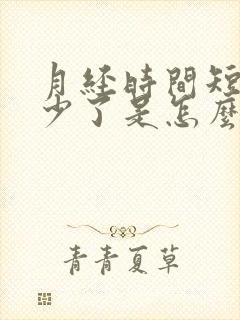 月经時間短
少了是怎麼
青青夏草